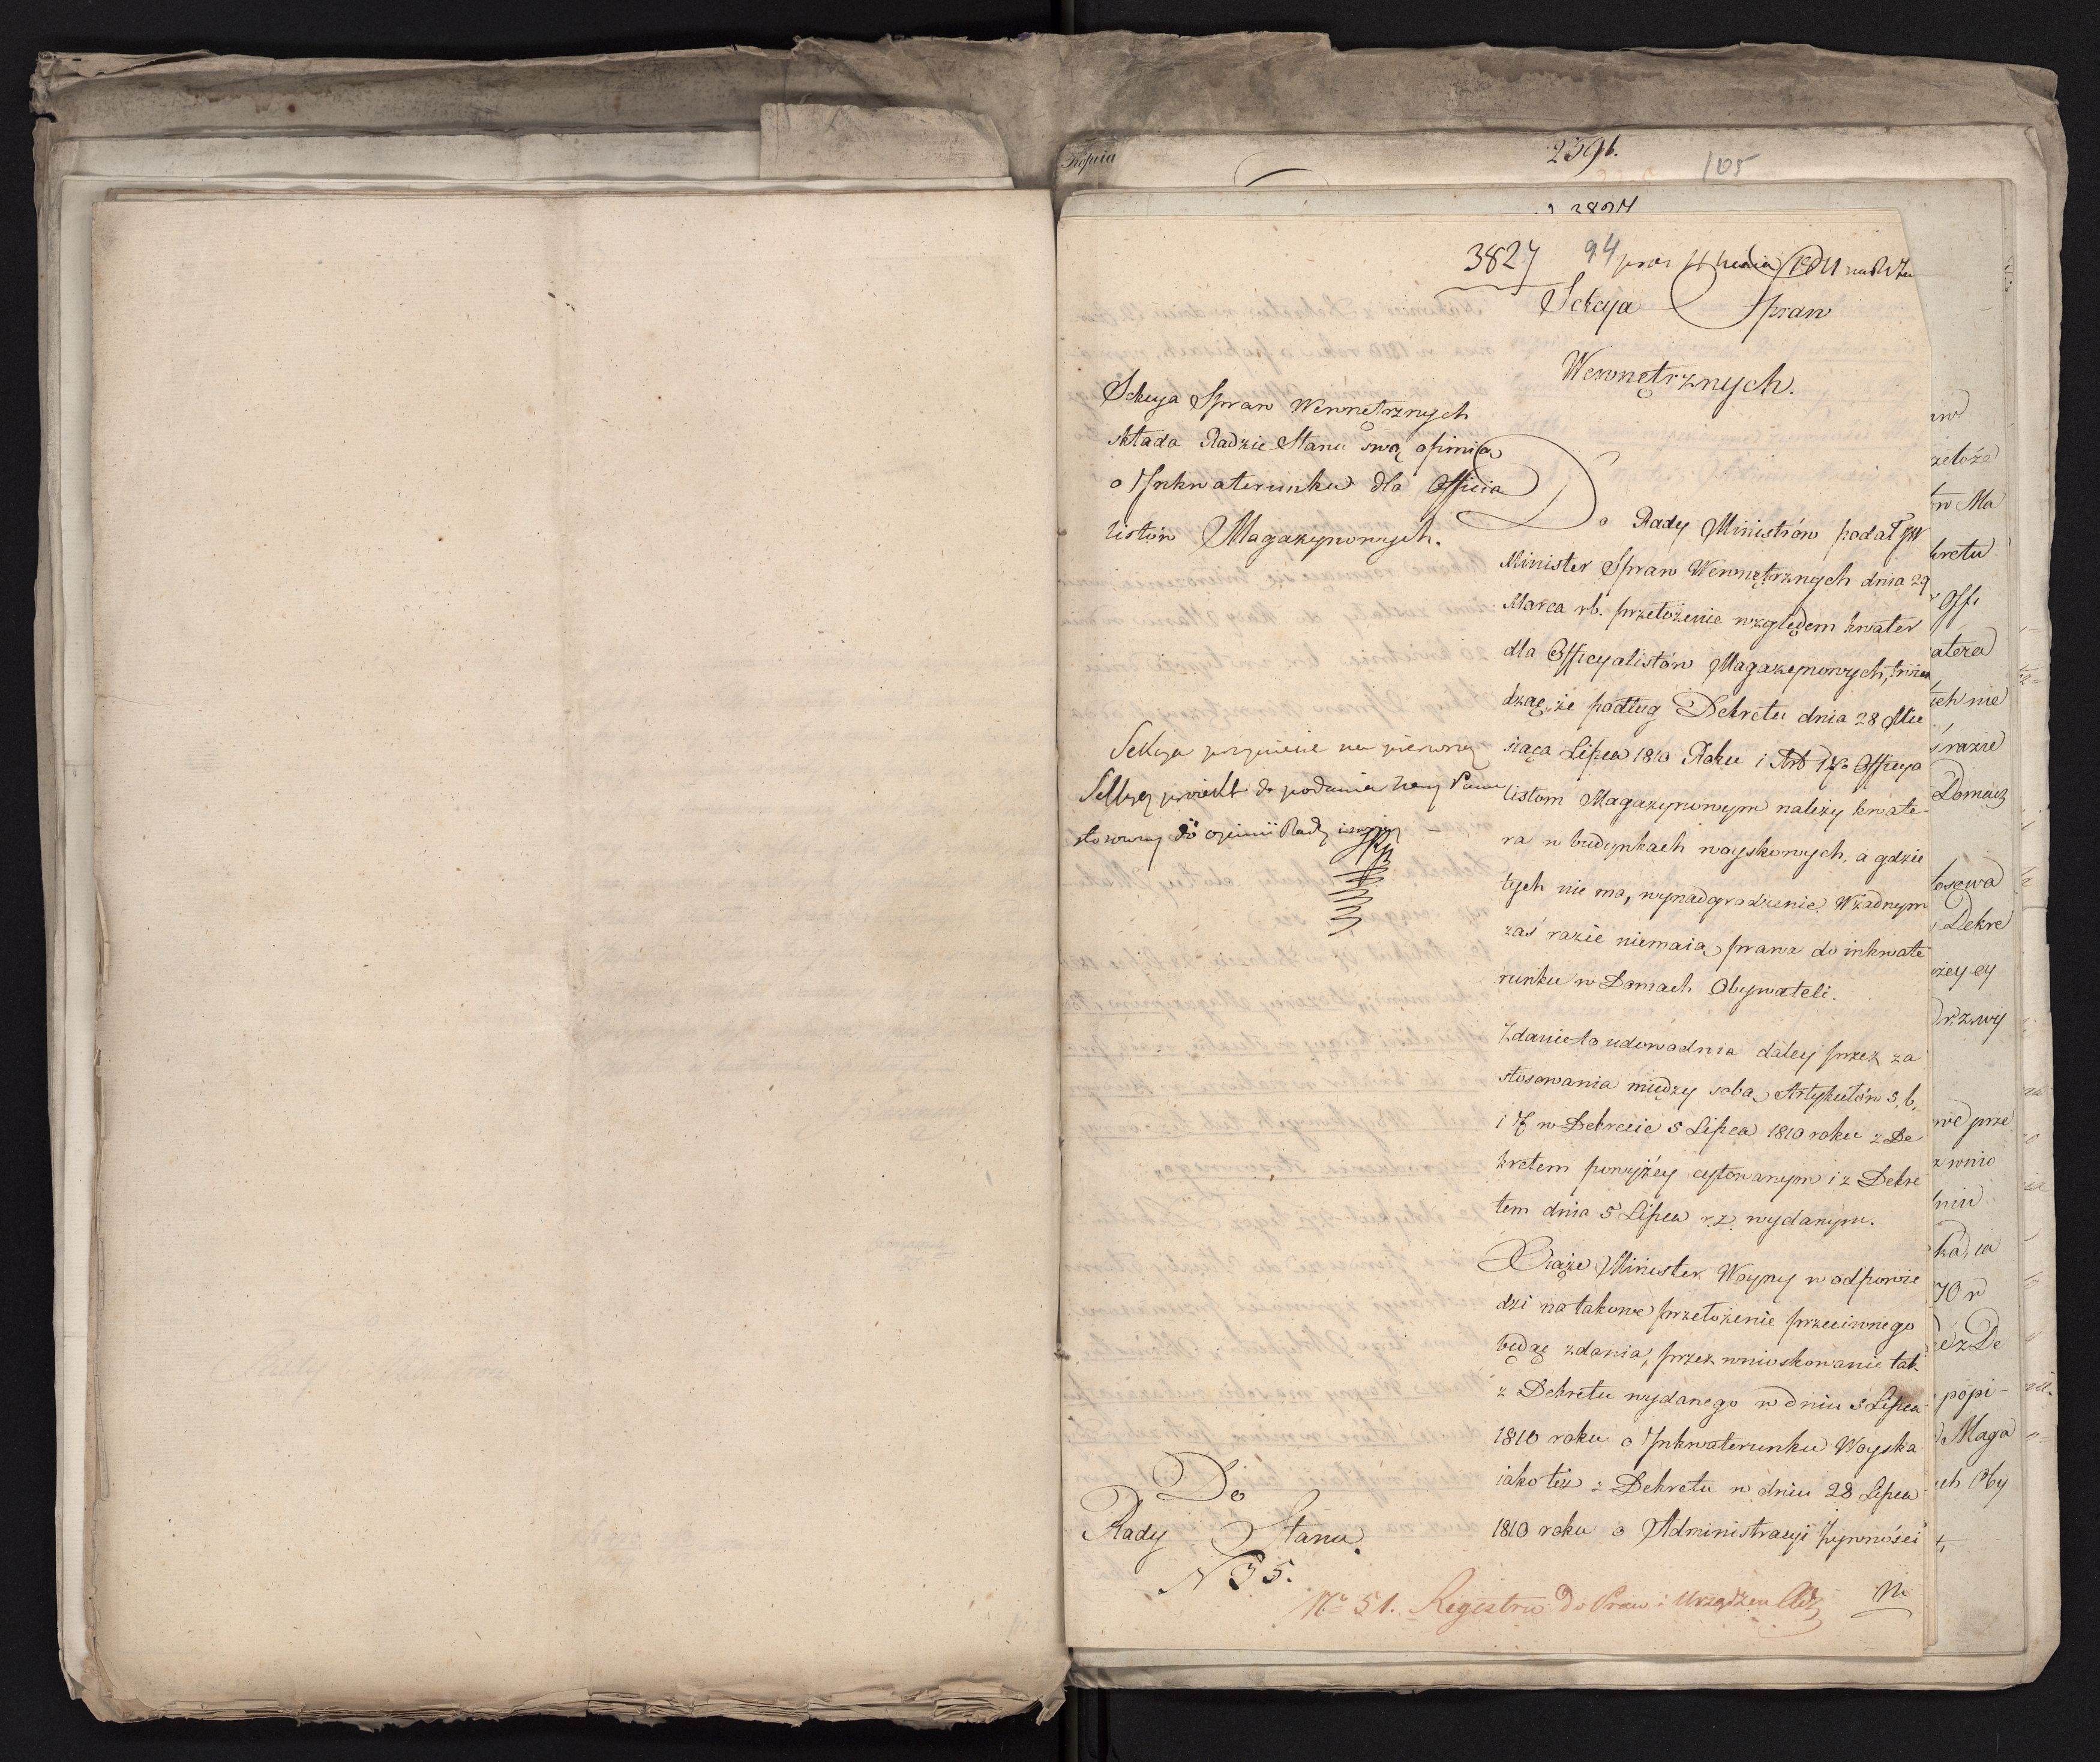 Kopia
239b.
105
3827
94
Sekcya Spraw
Wewnętrznych.
Sekcya Spraw Wewnętrznych
składa Radzie Stanu swą opinią
o Inkwaterunku dla Officia
listów Magazynowych.
Do Rady Ministrów podał JW
Minister Spraw Wewnętrznych dnia 29
Marca rb. przełożenie względem kwater
dla Officyalistów Magazynowych, twier
dząc, że podług Dekretu dnia 28 Mie
siąca Lipca 1810 Roku i Art 17o Officya
listom Magazynowym należy kwate-
ra w budynkach woyskowych, a gdzie
tych nie ma, wynadgrodzenie. W żadnym
zaś razie niemaią prawa do inkwate
runku w Domach Obywateli.
Zdanie to udowodnia daley przez za
stosowania między sobą Artykułów 5, 6,
i 7 w Dekrecie 5 Lipca 1810 roku z De
kretem powyżey cytowanym i z Dekre
tem dnia 5 Lipca r.z. wydanym.
Xiąże Minister Woyny w odpowie
dzi na takowe przełożenie przeciwnego
będąc zdania, przez wnioskowanie tak
z Dekretu wydanego w dniu 5 Lipca
1810 roku o Inkwaterunku Woyska
iako też z Dekretu w dniu 28 Lipca
1810 roku o Administracyi Żywności
Sekcya przyniesie na pierwszą
Sekcyą proiekt do podania
stosowny do opinii Rady
Do
Rady Stanu.
N 35.
No 51. Registru do Praw i Urządzeń